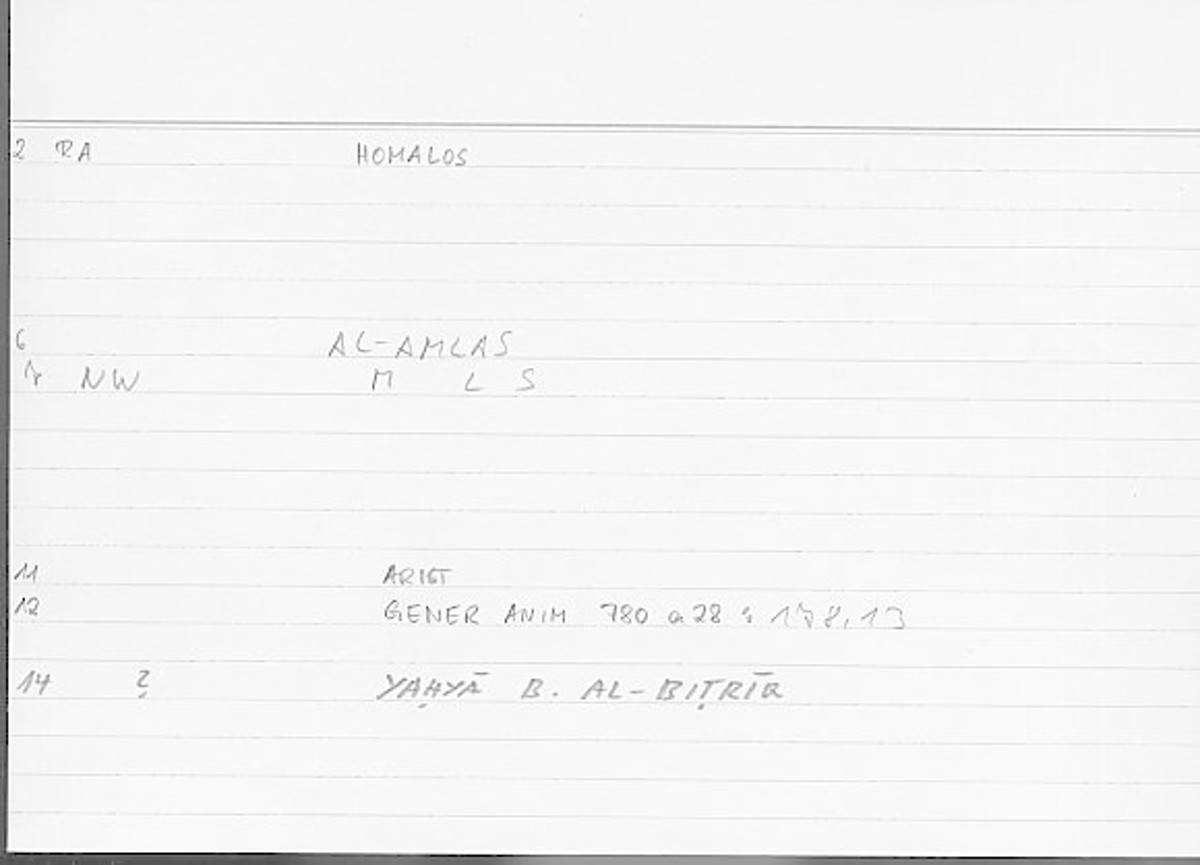 2 RA HOMALOS
6 AL-AMLAS
7 NW M L S
11 ARIST
12 GENER ANIM 780 a 28 : 178,13
14 ? YAḤYĀ B. AL-BIṬRĪQ